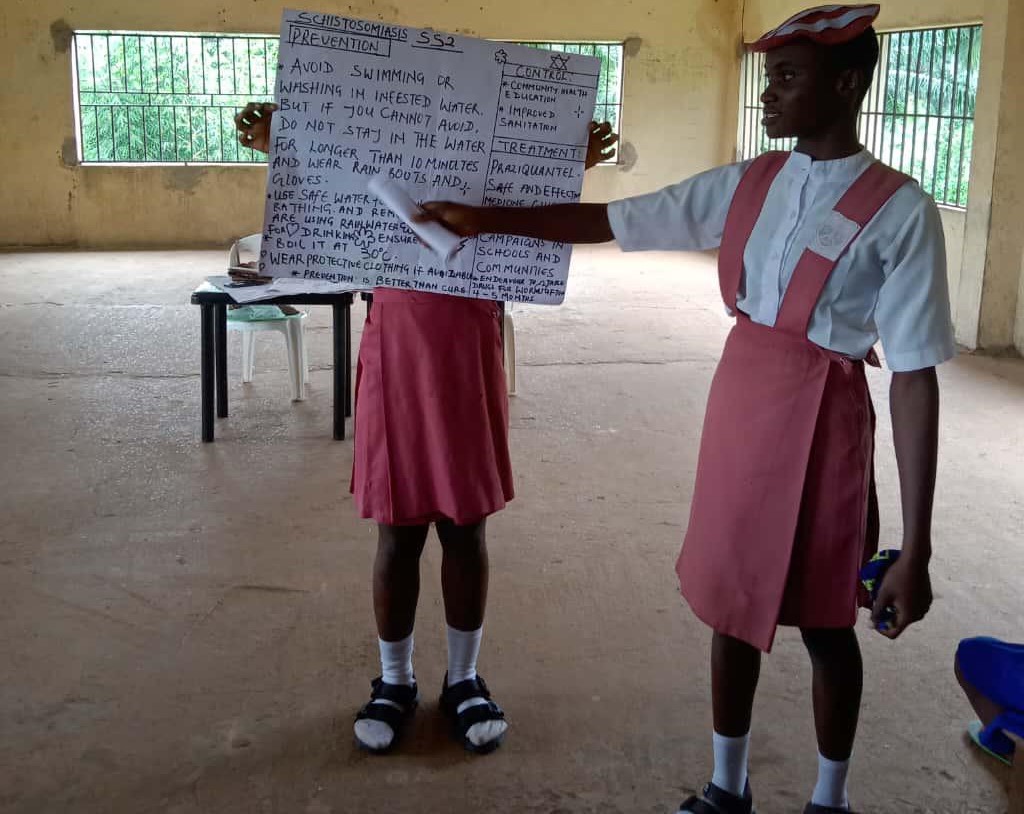 SCHISTOSOMIASIS SS2
PREVENTION
• AVOID SWIMMING OR
WASHING IN INFESTED WATER.
BUT IF YOU CANNOT AVOID,
DO NOT STAY IN THE WATER
FOR LONGER THAN 10 MINUTES
AND WEAR RAIN BOUTS AND
GLOVES.
• USE SAFE WATER
BATHING. AND
ARE USING RAINWATER
FOR DRINKING ENSURE
BOIL IT AT 50°C.
• WEAR PROTECTIVE CLOTHING IF AVOIDABLE
* PREVENTION IS BETTER THAN CURE
CONTROL:
* COMMUNITY HEALTH
EDUCATION
* IMPROVED
SANITATION
TREATMENT:
PRAZIQUANTEL.
SAFE AND EFFECTIVE
MEDICINE
CAMPAIGNS IN
SCHOOLS AND
COMMUNITIES
* ENDEAVOUR TO TAKE
DRUGS FOR WORMS AFTER
4-5 MONTHS